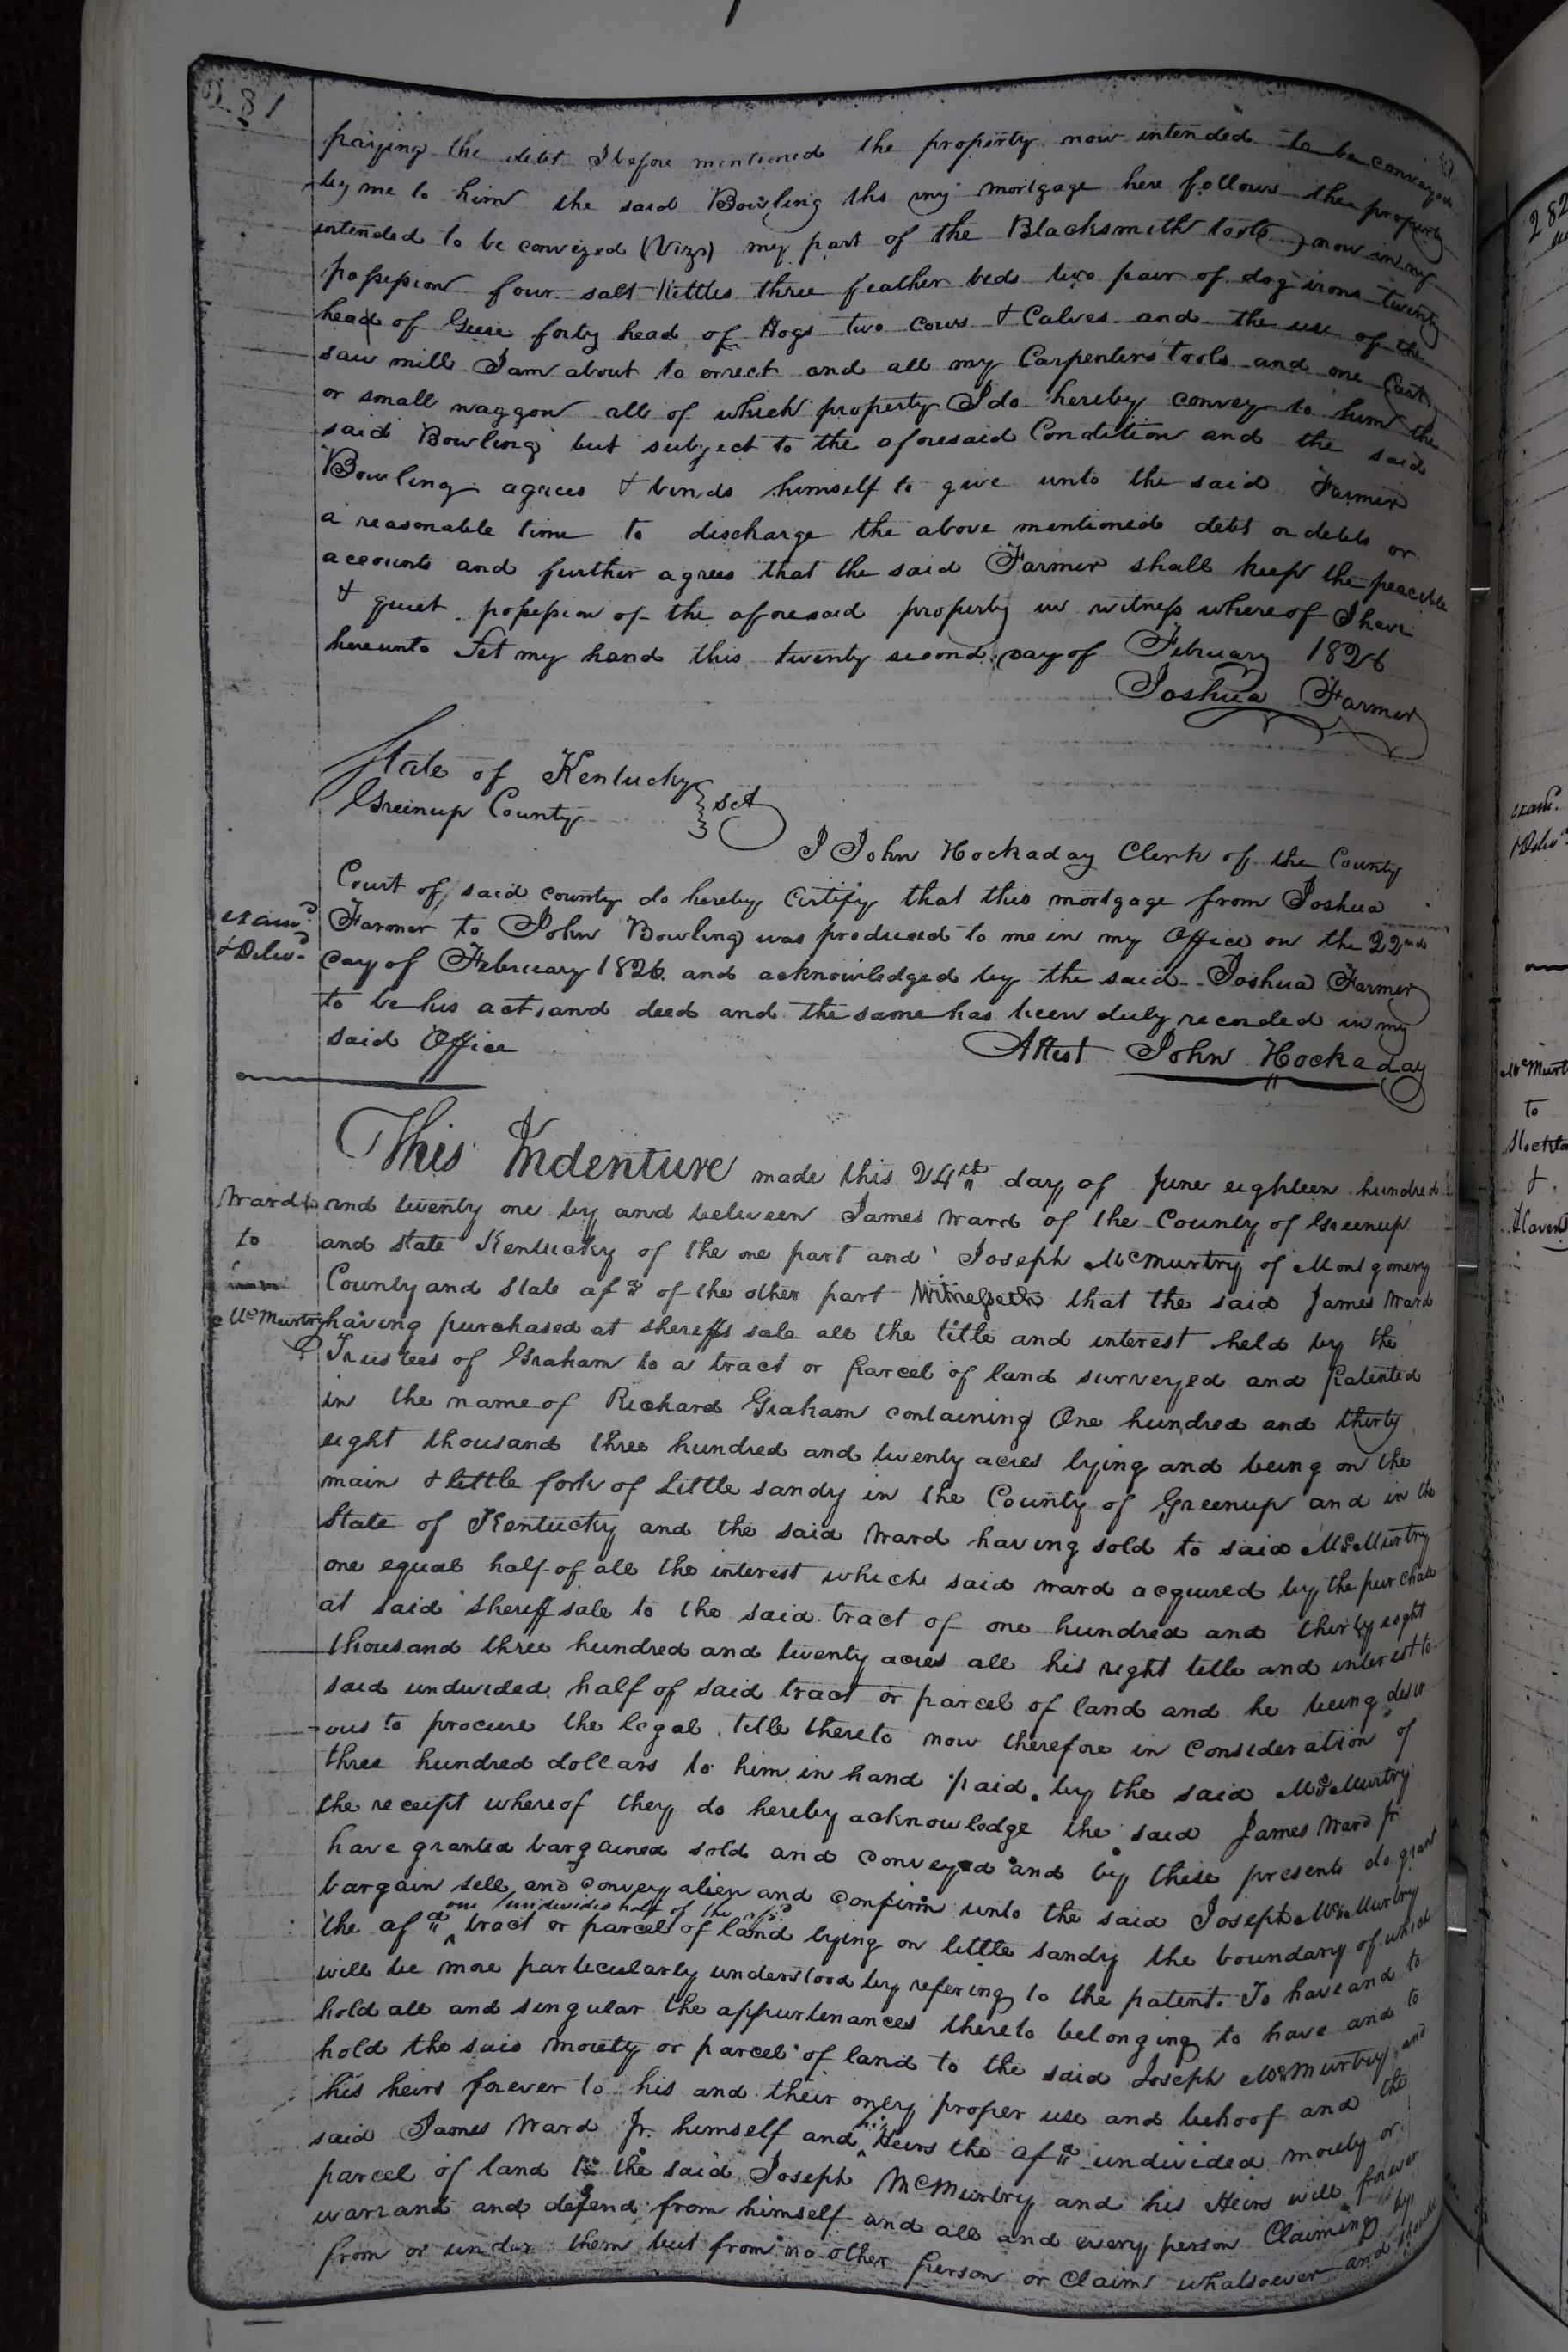 281
paying the debt I before mentioned the property now intended to be conveyed
by me to him the said Bowling ths my mortgage here follows the property
intended to be conveyed (Vizs) my part of the Blacksmith tools now in my
possession four salt Kettles three feather beds two pair of dog irons twenty
head of Geese forty head of Hogs two cows & Calves and the use of the
saw mill I am about to errect and all my Carpenters tools and one Cart
or small waggon all of which property I do hereby convey to him the
said Bowling but subject to the aforesaid Condition and the said
Bowling agrees & binds himself to give unto the said Farmer
a reasonable time to discharge the above mentioned debt or debts or
accounts and further agrees that the said Farmer shall keep the peacible
& quiet possession of the aforesaid property in witness whereof I have
hereunto set my hand this twenty second day of February 1826
Joshua Farmer
State of Kentucky
Greenup County } sct
I John Hockaday Clerk of the County
Court of said county do hereby Certify that this mortgage from Joshua
Farmer to John Bowling was produced to me in my Office on the 22nd
day of February 1826 and acknowledged by the said Joshua Farmer
to be his act and deed and the same has been duly recorded in my
said Office
Attest John Hockaday
exam.d
& Deliv.d
This Indenture made this 24th day of June eighteen hundred
and twenty one by and between James Ward of the County of Greenup
and state Kentucky of the one part and Joseph McMurtry of Montgomery
County and State afd of the other part Witnesseth that the said James Ward
having purchased at sheriffs sale all the title and interest held by the
Trustees of Graham to a tract or parcel of land surveyed and Patented
in the name of Richard Graham containing One hundred and thirty
eight thousand three hundred and twenty acres lying and being on the
main & little fork of Little sandy in the County of Greenup and in the
State of Kentucky and the said Ward having sold to said McMurtry
one equal half of all the interest which said ward acquired by the purchase
at said sheriff sale to the said tract of one hundred and thirty eight
thousand three hundred and twenty acres all his right title and interest to
said undivided half of said tract or parcel of land and he being desir
ous to procure the legal title thereto now therefore in Consideration of
three hundred dollars to him in hand paid by the said McMurtry
the receipt whereof they do hereby acknowledge the said James Ward Jr
have granted bargained sold and conveyed and by these presents do grant
bargain sell and convey alien and confirm unto the said Joseph McMurtry
one undivided half of the afsd
the afd tract or parcel of land lying on little sandy the boundary of which
will be more particularly understood by refering to the patent. To have and to
hold all and singular the appurtenances thereto belonging to have and to
hold the said moiety or parcel of land to the said Joseph McMurtry and
his heirs forever to his and their only proper use and behoof and the
said James Ward Jr. himself and Heirs the afd undivided moiety or
parcel of land to the said Joseph McMurtry and his Heirs will forever
warrant and defend from himself and all and every person Claiming by
from or under them but from no other person or Claim whatsoever and should
Ward
to
McMurtry
282
exam.d
& Deliv.d
McMurt
to
Stockto
&